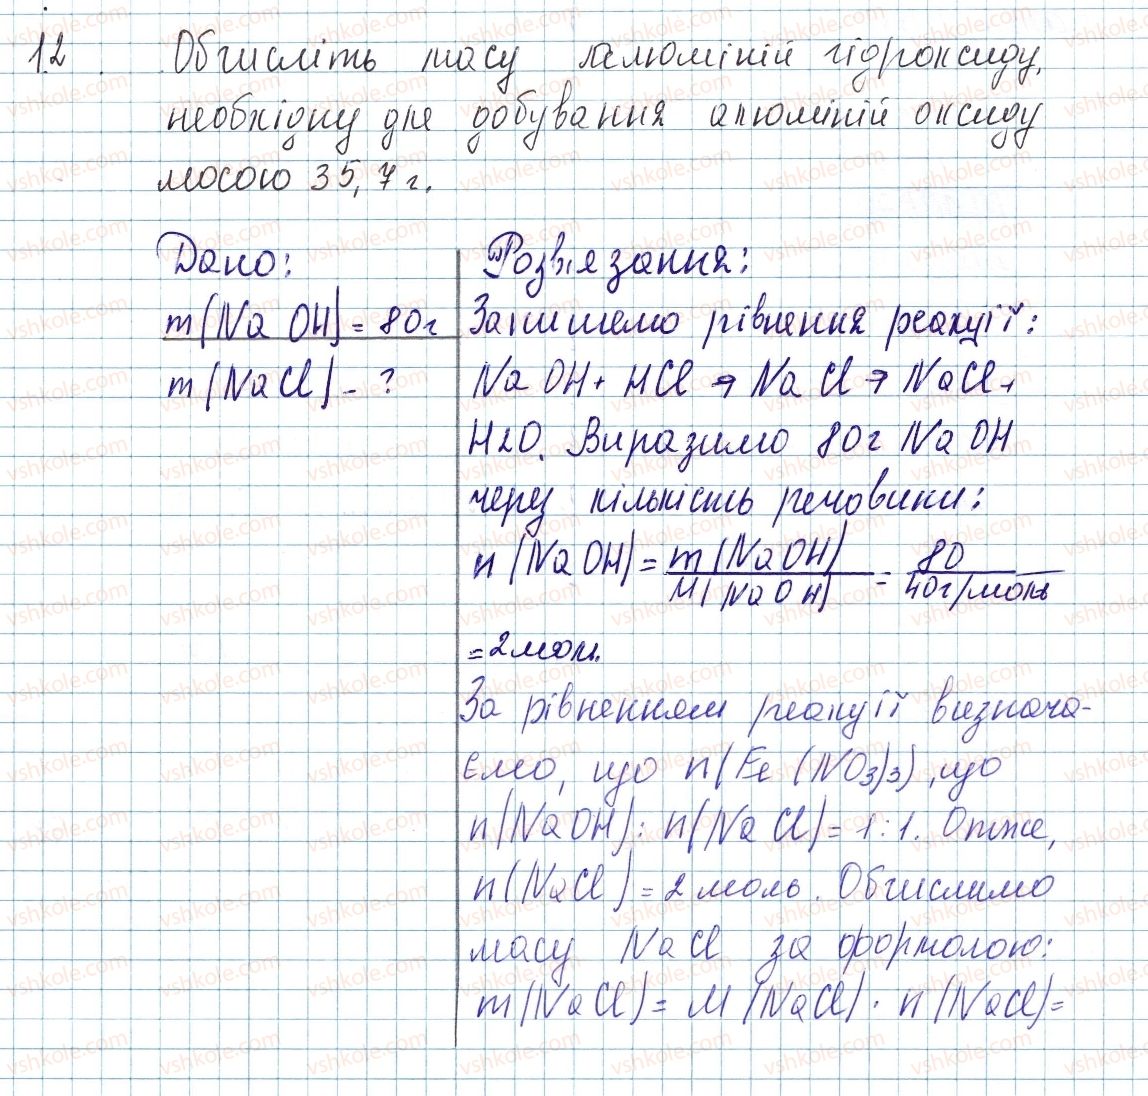 12. Обчисліть масу алюміній гідроксиду,
необхідну для добування алюміній оксиду
масою 35,7 г.
Дано:
m(NaOH) = 80г
m(NaCl) - ?
Розв'язання:
Запишемо рівнення реакції:
NaOH + HCl → NaCl → NaCl +
H2O. Виразимо 80г NaOH
через кількість речовини:
n(NaOH) = m(NaOH) / M(NaOH) = 80 / 40г/моль
= 2 моль.
За рівненням реакції визнача-
ємо, що n(Fe(NO3)3), що
n(NaOH) : n(NaCl) = 1:1. Отже,
n(NaCl) = 2 моль. Обчислимо
масу NaCl за формолою:
m(NaCl) = M(NaCl) · n(NaCl) =